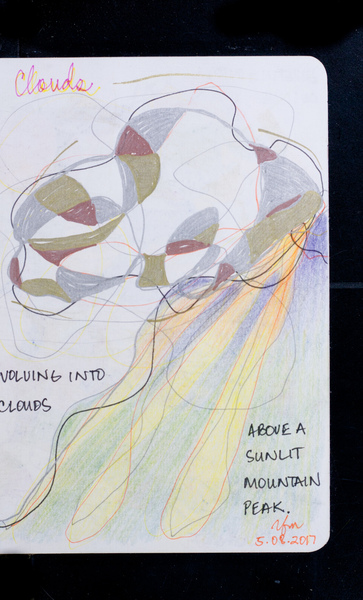 Clouds
VOLVING INTO
CLOUDS
ABOVE A
SUNLIT
MOUNTAIN
PEAK.
5.08.2017